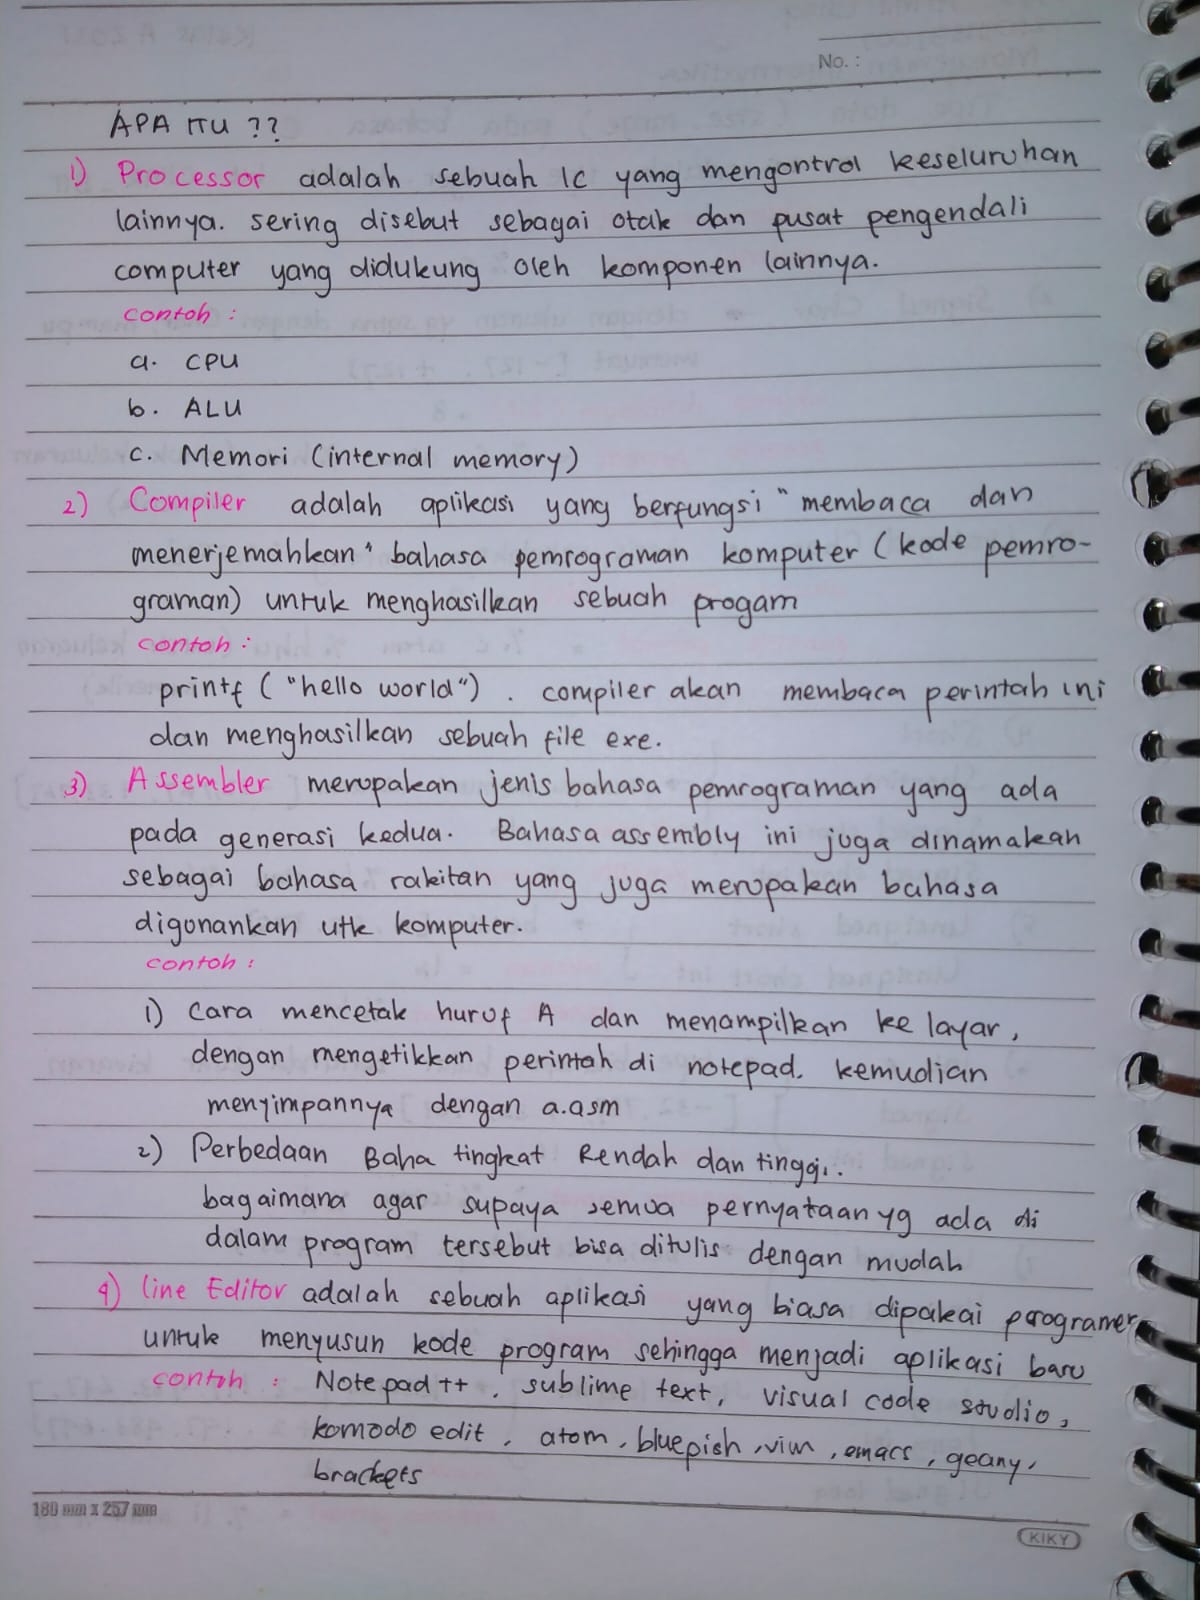 No. :
APA ITU ??
1) Processor adalah sebuah IC yang mengontrol keseluruhan
lainnya. sering disebut sebagai otak dan pusat pengendali
computer yang didukung oleh komponen lainnya.
contoh :
a. CPU
b. ALU
c. Memori (internal memory)
2) Compiler adalah aplikasi yang berfungsi "membaca dan
menerjemahkan" bahasa pemrograman komputer (kode pemro-
graman) untuk menghasilkan sebuah progam
contoh :
printf ("hello world"). compiler akan membaca perintah ini
dan menghasilkan sebuah file exe.
3) Assembler merupakan jenis bahasa pemrograman yang ada
pada generasi kedua. Bahasa assembly ini juga dinamakan
sebagai bahasa rakitan yang juga merupakan bahasa
digonankan utk komputer.
contoh :
1) Cara mencetak huruf A dan menampilkan ke layar,
dengan mengetikkan perintah di notepad. kemudian
menyimpannya dengan a.asm
2) Perbedaan Baha tingkat Rendah dan tinggi.
bagaimana agar supaya semua pernyataan yg ada di
dalam program tersebut bisa ditulis dengan mudah
4) line Editor adalah sebuah aplikasi yang biasa dipakai porogramer
untuk menyusun kode program sehingga menjadi aplikasi baru
contoh : Notepad ++, sublime text, visual code studio,
komodo edit, atom, bluepish, vim, emacs, geany,
brackets
180 mm x 257 mm
KIKY